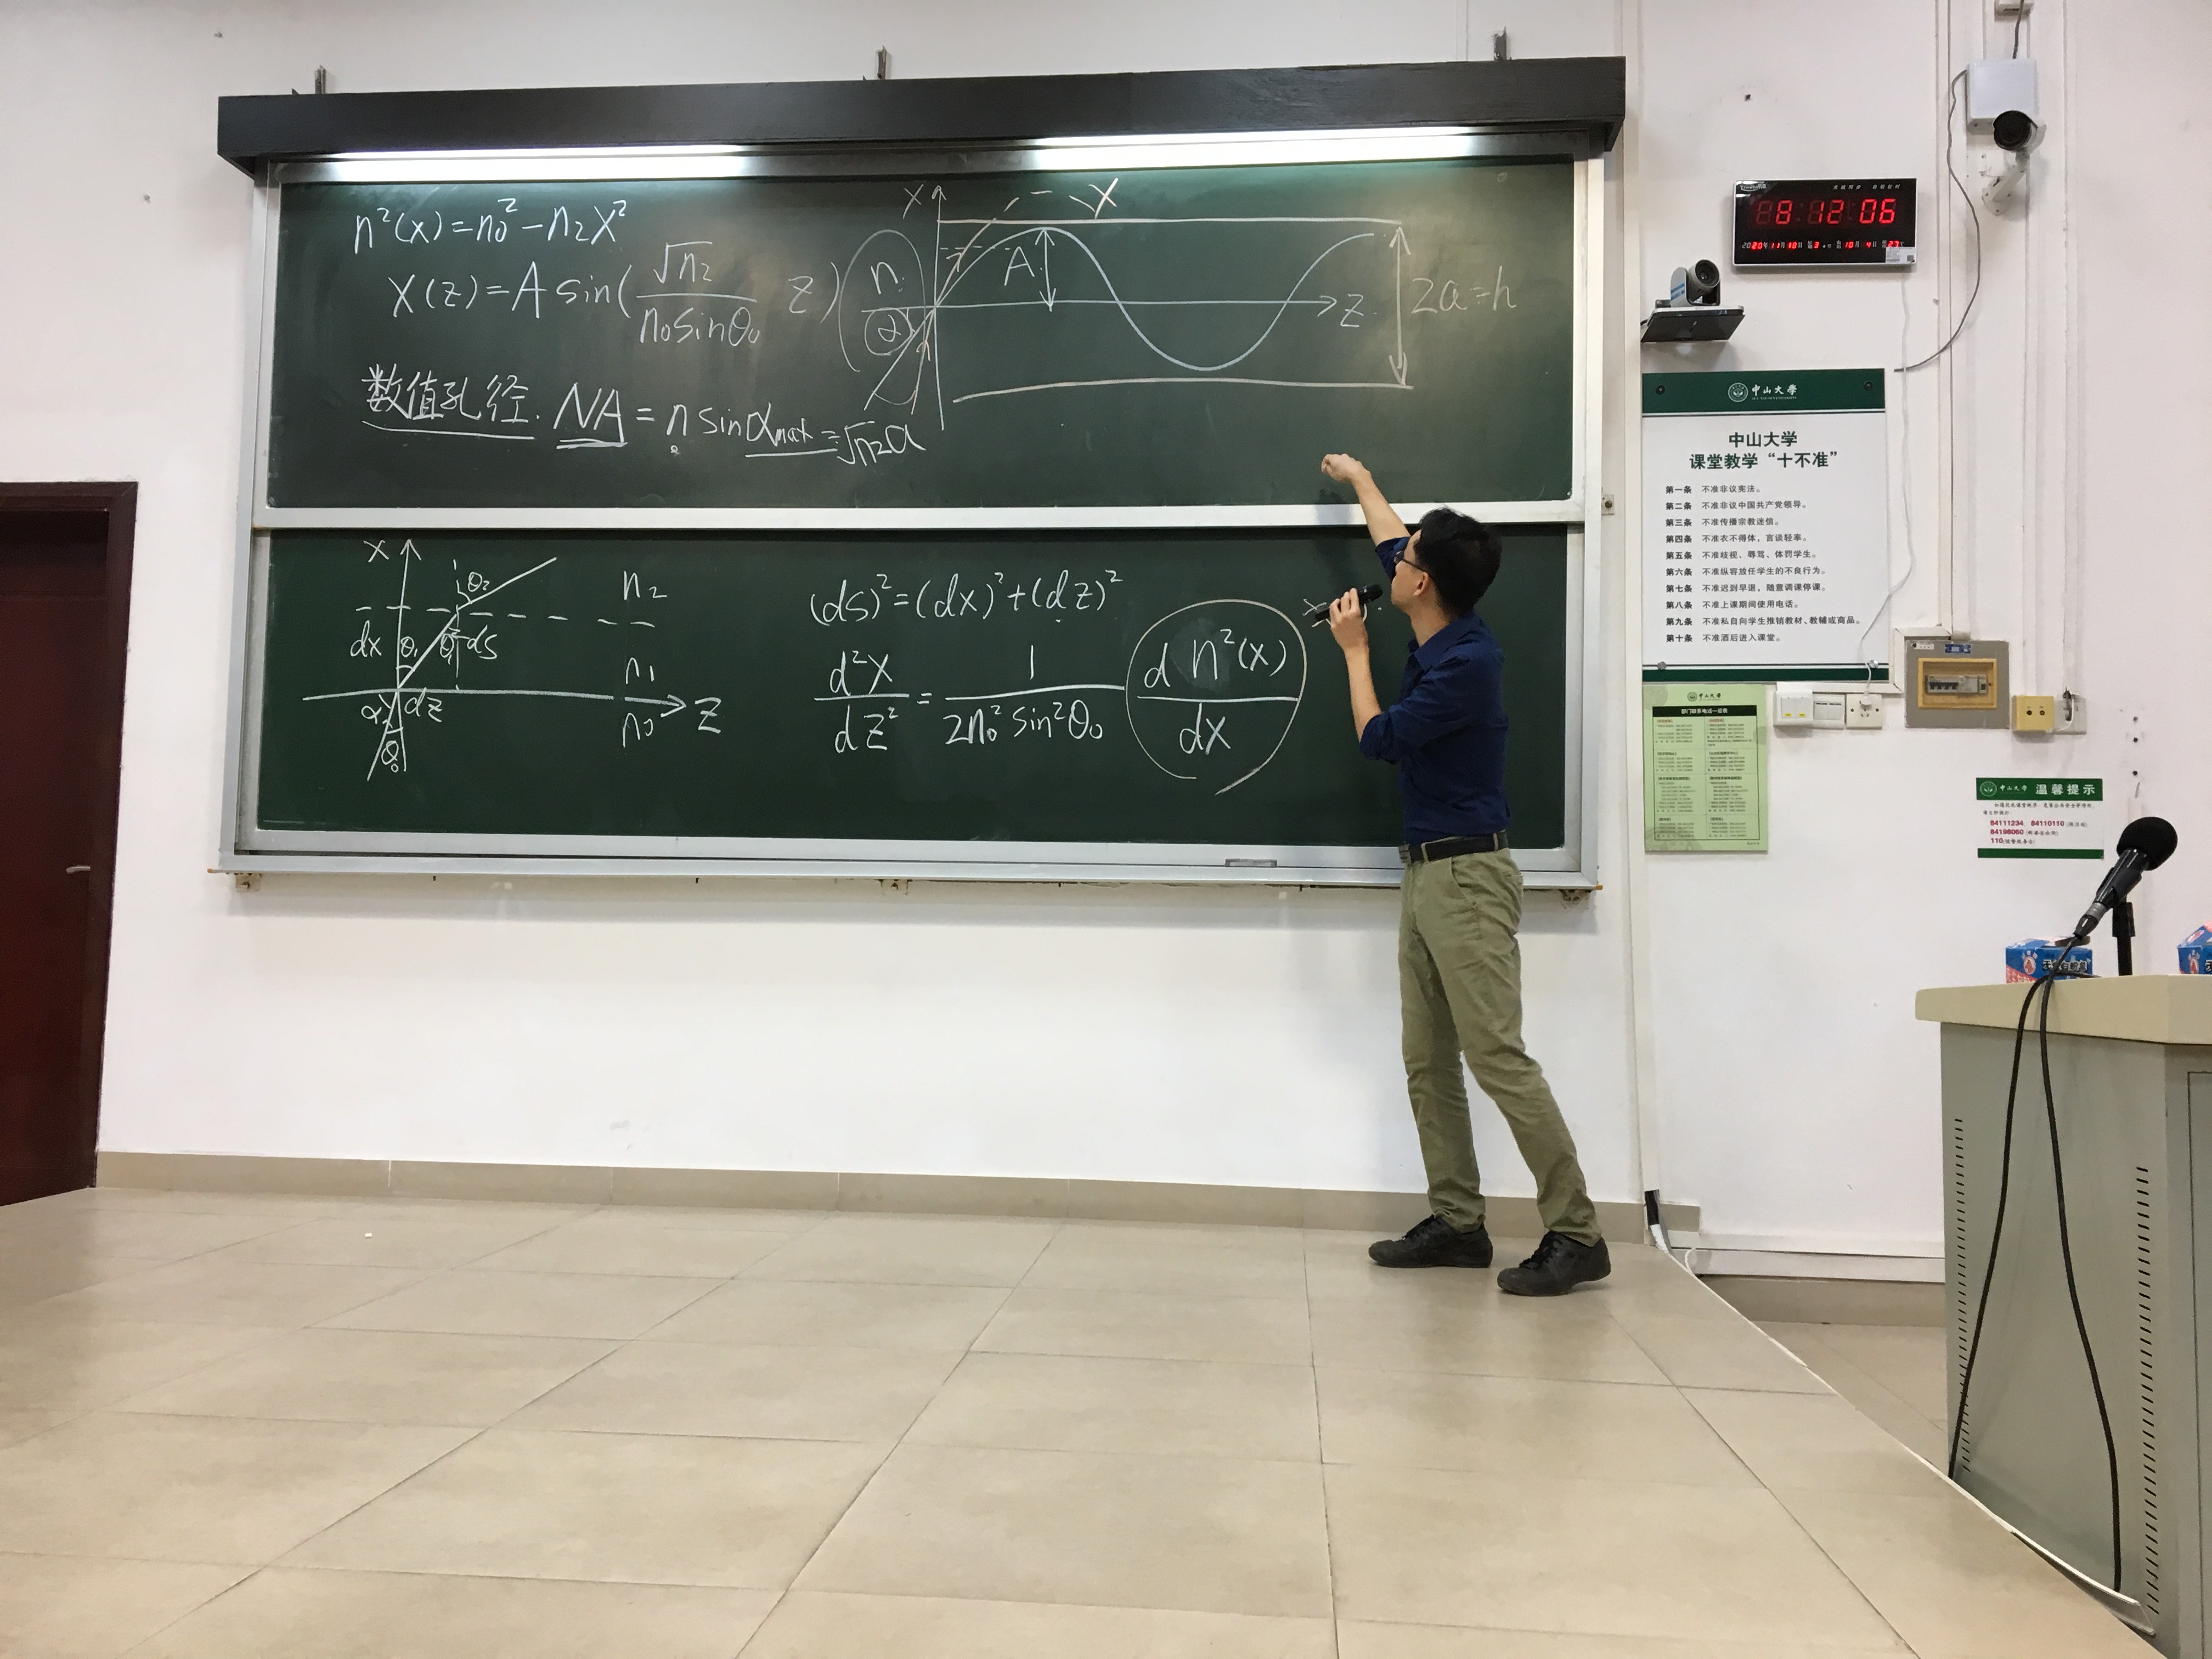 n²(x)=n₀²-n₂x²
x(z)=A sin(√n₂/n₀sinθ₀ z)
数值孔径. NA = n sinαmax=√n₂a
n
α
x
x
A
z
2a=h
x
θ₂
n₂
dx
θ₁
θ₁
ds
n₁
α
dz
z
n₀
θ₀
(ds)²=(dx)²+(dz)²
d²x/dz² = 1/2n₀²sin²θ₀ dn²(x)/dx
8:12:06
2020年11月18日
中山大学
中山大学
课堂教学“十不准”
第一条 不准非议宪法。
第二条 不准非议中国共产党领导。
第三条 不准传播宗教迷信。
第四条 不准衣不得体,言谈轻率。
第五条 不准歧视、辱骂、体罚学生。
第六条 不准纵容放任学生的不良行为。
第七条 不准迟到早退,随意调课停课。
第八条 不准上课期间使用电话。
第九条 不准私自向学生推销教材、教辅或商品。
第十条 不准酒后进入课堂。
中山大学
部门联系电话一览表
中山大学 温馨提示
84111234、84110110
84198060
110